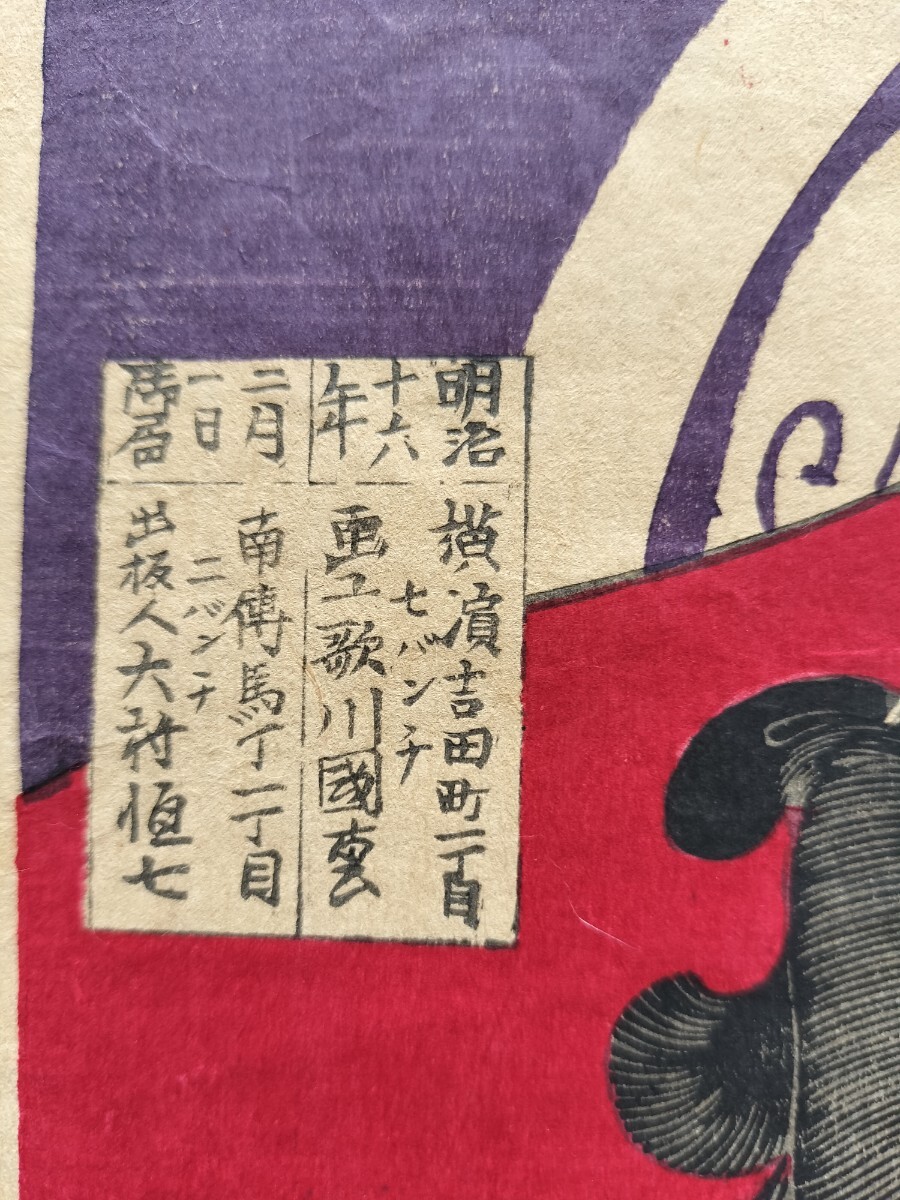 明治
十六
年
二月
一日
御届
横濱吉田町一丁目
七バンチ
画工歌川國
南傳馬丁一丁目
二バンチ
出板人大村恒七